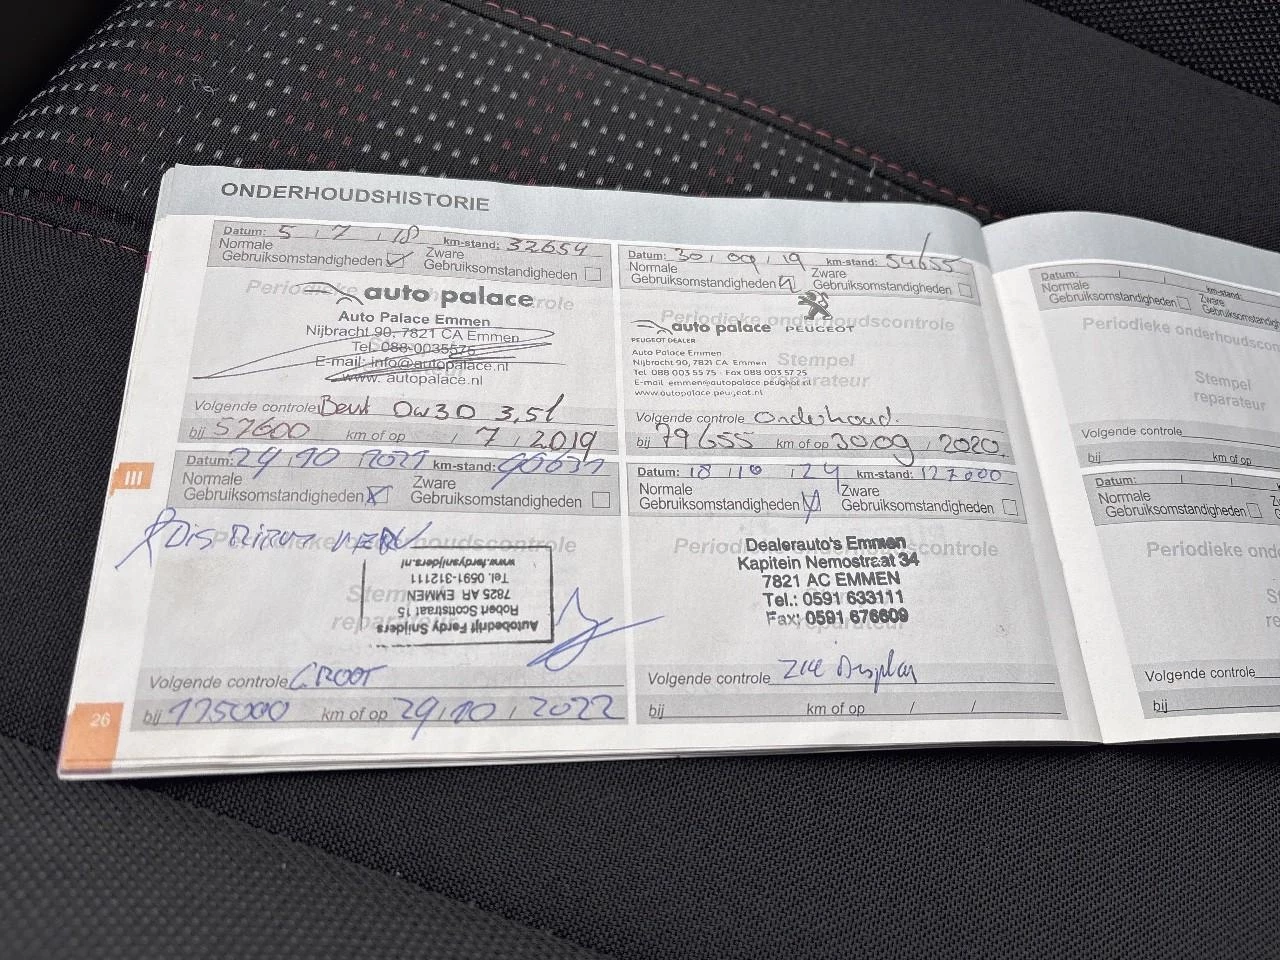 ONDERHOUDSHISTORIE
Datum: 5 / 7 / 18 km-stand: 32654
Normale Gebruiksomstandigheden
Zware Gebruiksomstandigheden
Periodieke onderhoudscontrole
auto palace
Auto Palace Emmen
Nijbracht 90, 7821 CA Emmen
Tel. 088-0035576
E-mail: info@autopalace.nl
www. autopalace.nl
Volgende controle 0W30 3,5l
bij 57600 km of op / 7 / 2019
Datum: 30 / 09 / 19 km-stand: 54655
Normale Gebruiksomstandigheden
Zware Gebruiksomstandigheden
Periodieke onderhoudscontrole
auto palace PEUGEOT
PEUGEOT DEALER
Stempel reparateur
Auto Palace Emmen
Nijbracht 90, 7821 CA Emmen
Tel 088 003 55 75 - Fax 088 003 57 25
E-mail emmen@autopalace.peugeot.nl
www.autopalace.peugeot.nl
Volgende controle Onderhoud.
bij 79655 km of op 30 09 / 2020
III
Datum: 29 / 10 / 2021 km-stand:
Normale Gebruiksomstandigheden
Zware Gebruiksomstandigheden
Periodieke onderhoudscontrole
Stempel reparateur
Autobedrijf Ferdy Snijders
Robert Scottstraat 15
7825 AR EMMEN
Tel. 0591-312111
www.ferdysnijders.nl
Volgende controle GROOT
bij 175000 km of op 29 / 10 / 2022
Datum: 18 / 10 / 24 km-stand: 127000
Normale Gebruiksomstandigheden
Zware Gebruiksomstandigheden
Periodieke onderhoudscontrole
Dealerauto's Emmen
Kapitein Nemostraat 34
7821 AC EMMEN
Tel.: 0591 633111
Fax: 0591 676609
reparateur
Volgende controle zie Display
bij km of op / /
26
Datum: km-stand:
Normale Gebruiksomstandigheden
Zware Gebruiksomstandigh
Periodieke onderhoudscon
Stempel
reparateur
Volgende controle
bij km of op
Datum:
Normale Gebruiksomstandigheden
Zware Gebruiksomst
Periodieke ond
St
re
Volgende controle
bij